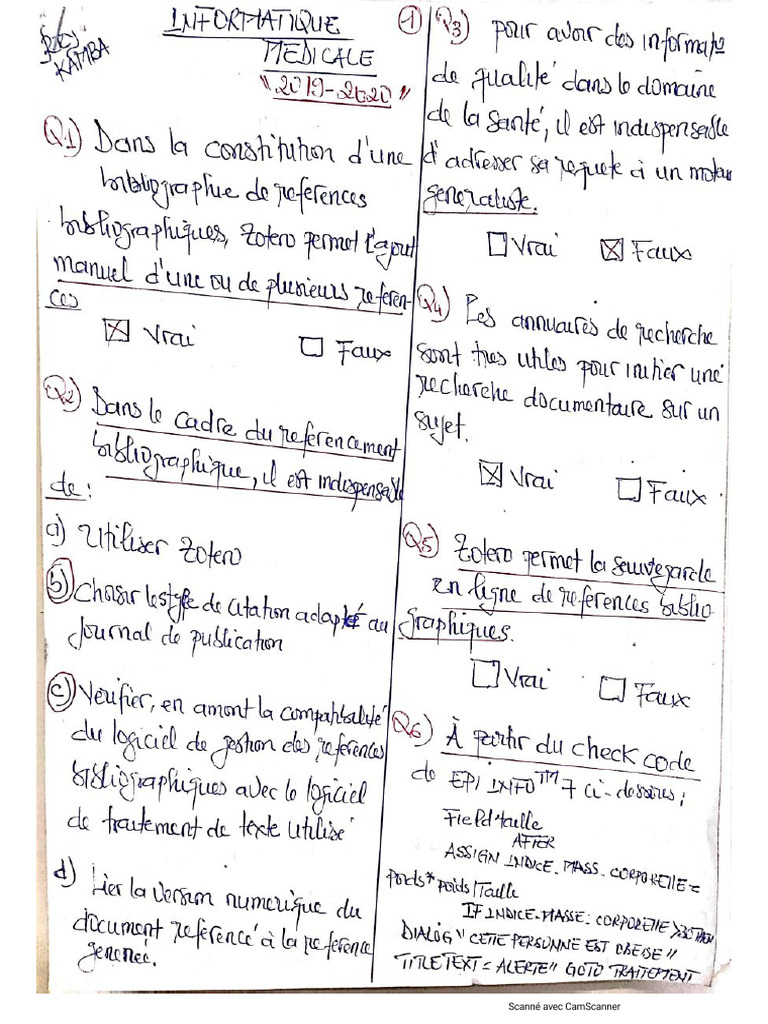 KAMBA
INFORMATIQUE
MEDICALE
"2019-2020"
Q1) Dans la constitution d'une
bibliographie de references
bibliographiques, Zotero permet l'ajout
manuel d'une ou de plusieurs referen-
ces
☒ Vrai ☐ Faux
Q2) Dans le cadre du referencement
bibliographique, il est indispensable
de :
a) Utiliser Zotero
b) Choisir le style de citation adapté au
Journal de publication
c) Verifier, en amont la compatibilité
du logiciel de gestion des references
bibliographiques avec le logiciel
de traitement de texte utilisé
d) Lier la version numerique du
document reference à la reference
generée.
1
Q3) pour avoir des informat°
de qualité dans le domaine
de la Santé, il est indispensable
d'adresser sa requete à un moteur
generaliste.
☐ Vrai ☒ Faux
Q4) Les annuaires de recherche
sont tres utiles pour initier une
recherche documentaire sur un
sujet.
☒ Vrai ☐ Faux
Q5) Zotero permet la sauvegarde
en ligne de references biblio
graphiques.
☐ Vrai ☐ Faux
Q6) À partir du check code
de EPI INFO™ 7 ci-dessous ;
Field taille
AFTER
ASSIGN INDICE. MASS. CORPORELLE =
poids* poids/Taille
IF INDICE-MASSE-CORPORELLE > THEN
DIALOG "CETTE PERSONNE EST OBESE"
TITLETEXT = ALERTE" GOTO TRAITEMENT
Scanné avec CamScanner